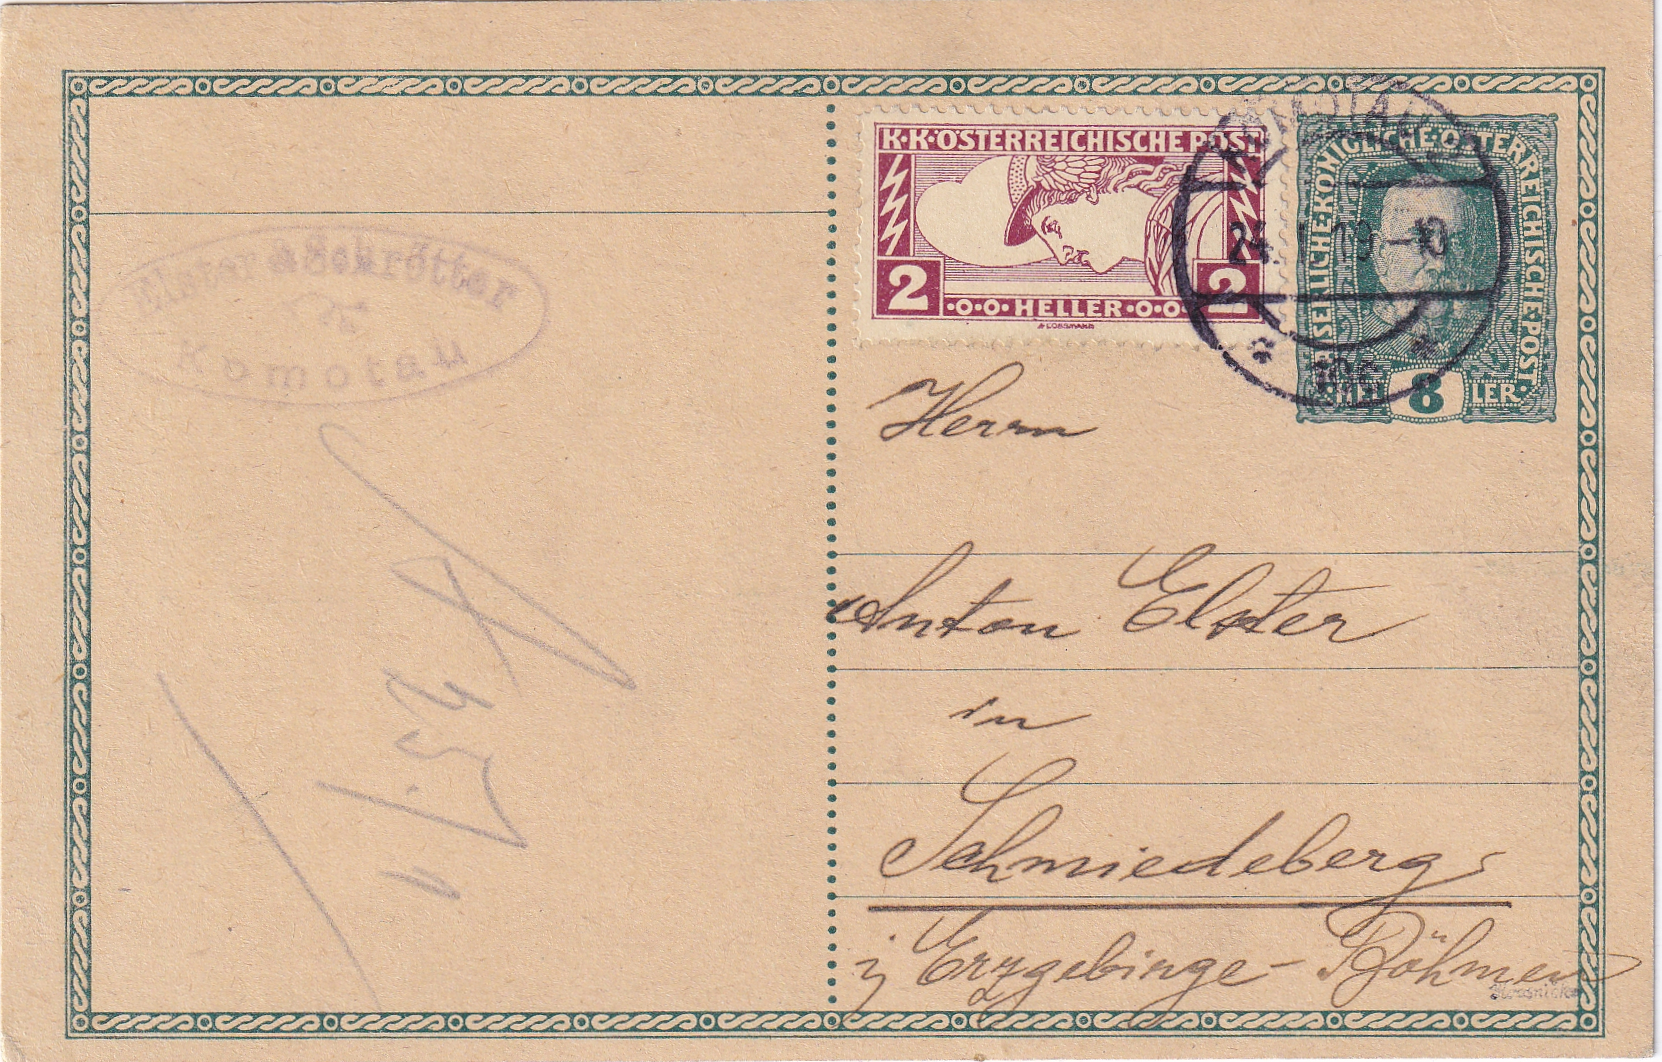 K·K·ÖSTERREICHISCHE POST
2 2
·O·O· HELLER ·O·O·
KAISERLICHE·KÖNIGLICHE·ÖSTERREICHISCHE·POST
HEL 8 LER
KOMOTAU
24. 19 -10
10c
Elster & Schrötter
Komotau
Herrn
Anton Elster
in
Schmiedeberg
i/ Erzgebirge - Böhmen